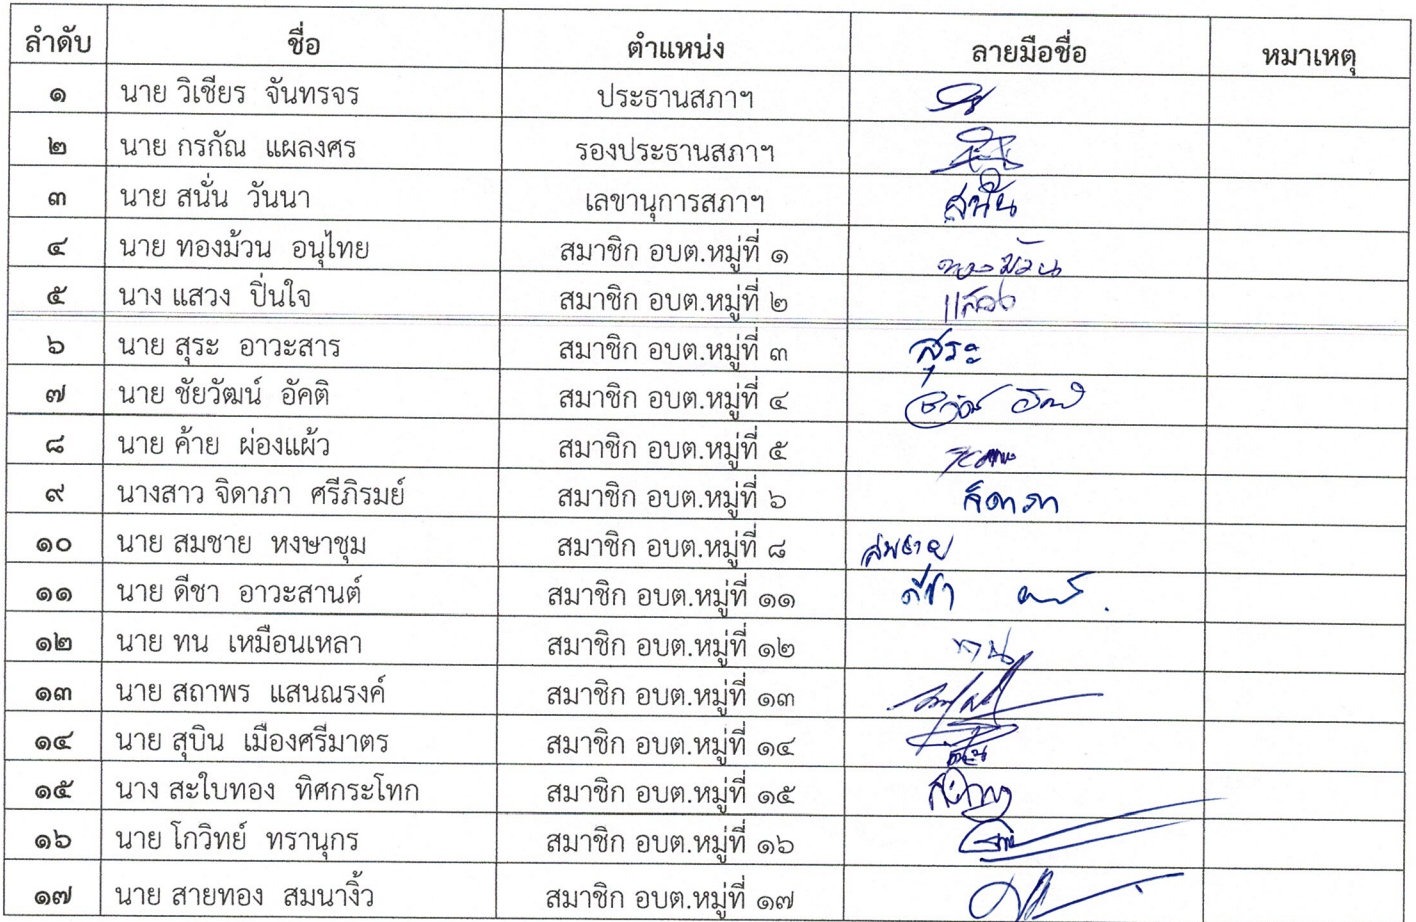 ลำดับ ชื่อ ตำแหน่ง ลายมือชื่อ หมายเหตุ
๑ นาย วิเชียร จันทรจร ประธานสภาฯ
๒ นาย กรกัณ แผลงศร รองประธานสภาฯ
๓ นาย สนั่น วันนา เลขานุการสภาฯ สนั่น
๔ นาย ทองม้วน อนุไทย สมาชิก อบต.หมู่ที่ ๑ ทองม้วน
๕ นาง แสวง ปิ่นใจ สมาชิก อบต.หมู่ที่ ๒ แสวง
๖ นาย สุระ อาวะสาร สมาชิก อบต.หมู่ที่ ๓ สุระ
๗ นาย ชัยวัฒน์ อัคติ สมาชิก อบต.หมู่ที่ ๔
๘ นาย ค้าย ผ่องแผ้ว สมาชิก อบต.หมู่ที่ ๕
๙ นางสาว จิดาภา ศรีภิรมย์ สมาชิก อบต.หมู่ที่ ๖ จิดาภา
๑๐ นาย สมชาย หงษาชุม สมาชิก อบต.หมู่ที่ ๘ สมชาย
๑๑ นาย ดีชา อาวะสานต์ สมาชิก อบต.หมู่ที่ ๑๑ ดีชา
๑๒ นาย ทน เหมือนเหลา สมาชิก อบต.หมู่ที่ ๑๒ ทน
๑๓ นาย สถาพร แสนณรงค์ สมาชิก อบต.หมู่ที่ ๑๓
๑๔ นาย สุบิน เมืองศรีมาตร สมาชิก อบต.หมู่ที่ ๑๔
๑๕ นาง สะใบทอง ทิศกระโทก สมาชิก อบต.หมู่ที่ ๑๕
๑๖ นาย โกวิทย์ ทรานุกร สมาชิก อบต.หมู่ที่ ๑๖
๑๗ นาย สายทอง สมนางิ้ว สมาชิก อบต.หมู่ที่ ๑๗